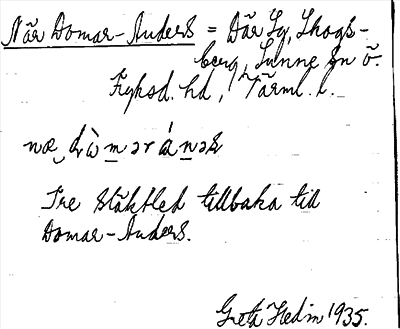 När Domar-Anders = Där Ly, Skogs-
berg, Sunne sn ö.
Fryksd. hd, Värml. l.
Tre släktled tillbaka till
Domar-Anders.
Greta Hedin 1935.